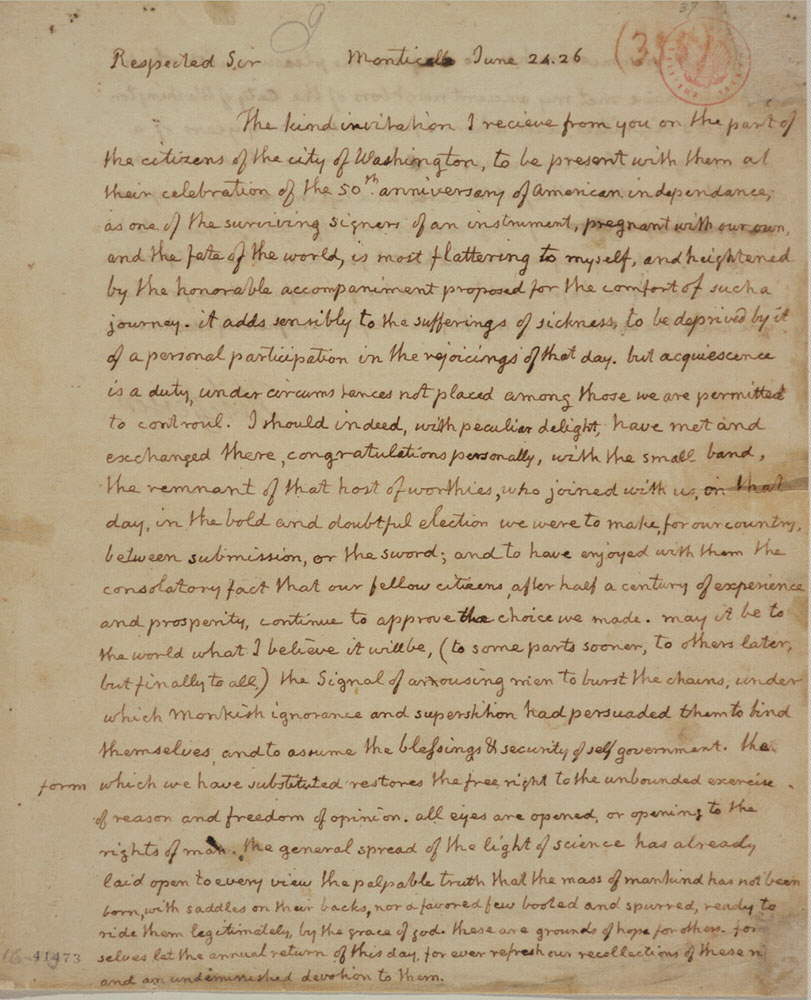 Respected Sir Monticello June 24. 26
The kind invitation I recieve from you on the part of
the citizens of the city of Washington, to be present with them at
their celebration of the 50th. anniversary of American independance;
as one of the surviving signers of an instrument, pregnant with our own,
and the fate of the world, is most flattering to myself, and heightened
by the honorable accompaniment proposed for the comfort of such a
journey. it adds sensibly to the sufferings of sickness, to be deprived by it
of a personal participation in the rejoicings of that day. but acquiescence
is a duty, under circumstances not placed among those we are permitted
to controul. I should indeed, with peculiar delight, have met and
exchanged there, congratulations personally, with the small band,
the remnant of that host of worthies, who joined with us, on that
day, in the bold and doubtful election we were to make, for our country,
between submission, or the sword; and to have enjoyed with them the
consolatory fact that our fellow citizens, after half a century of experience
and prosperity, continue to approve the choice we made. may it be to
the world what I believe it will be, (to some parts sooner, to others later,
but finally to all,) the Signal of arousing men to burst the chains, under
which Monkish ignorance and superstition had persuaded them to bind
themselves, and to assume the blessings & security of self government. the
form which we have substituted restores the free right to the unbounded exercise
of reason and freedom of opinion. all eyes are opened, or opening to the
rights of man. the general spread of the light of science has already
laid open to every view the palpable truth that the mass of mankind has not been
born, with saddles on their backs, nor a favored few booted and spurred, ready to
ride them legitimately, by the grace of god. these are grounds of hope for others. for
selves let the annual return of this day, for ever refresh our recollections of these
41473
and an undiminished devotion to them.